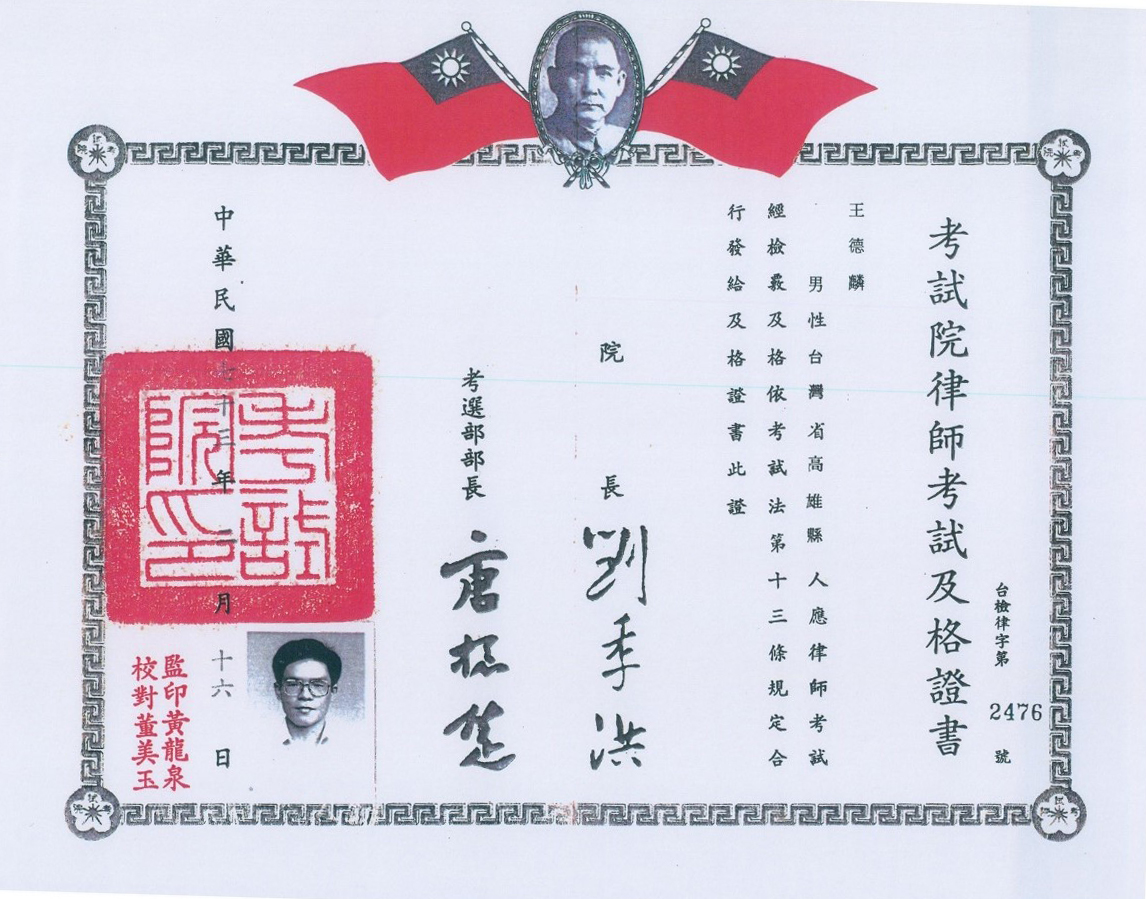 考試院律師考試及格證書
台檢律字第 2476 號
王德麟
男性台灣省高雄縣人應律師考試
經檢覈及格依考試法第十三條規定合
行發給及格證書此證
院長 劉季洪
考選部部長 唐振楚
中華民國七十三年二月十六日
考試院印
監印黃龍泉
校對董美玉